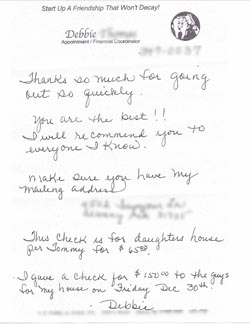 Start Up A Friendship That Won't Decay!
Debbie
Appointment / Financial Coordinator
Thanks so much for going
out so quickly.
You are the best!!
I will recommend you to
everyone I know.
make sure you have my
mailing address
This check is for daughters house
per Tommy for $65.00.
I gave a check for $150.00 to the guys
for my house on "Friday Dec 30th."
- Debbie